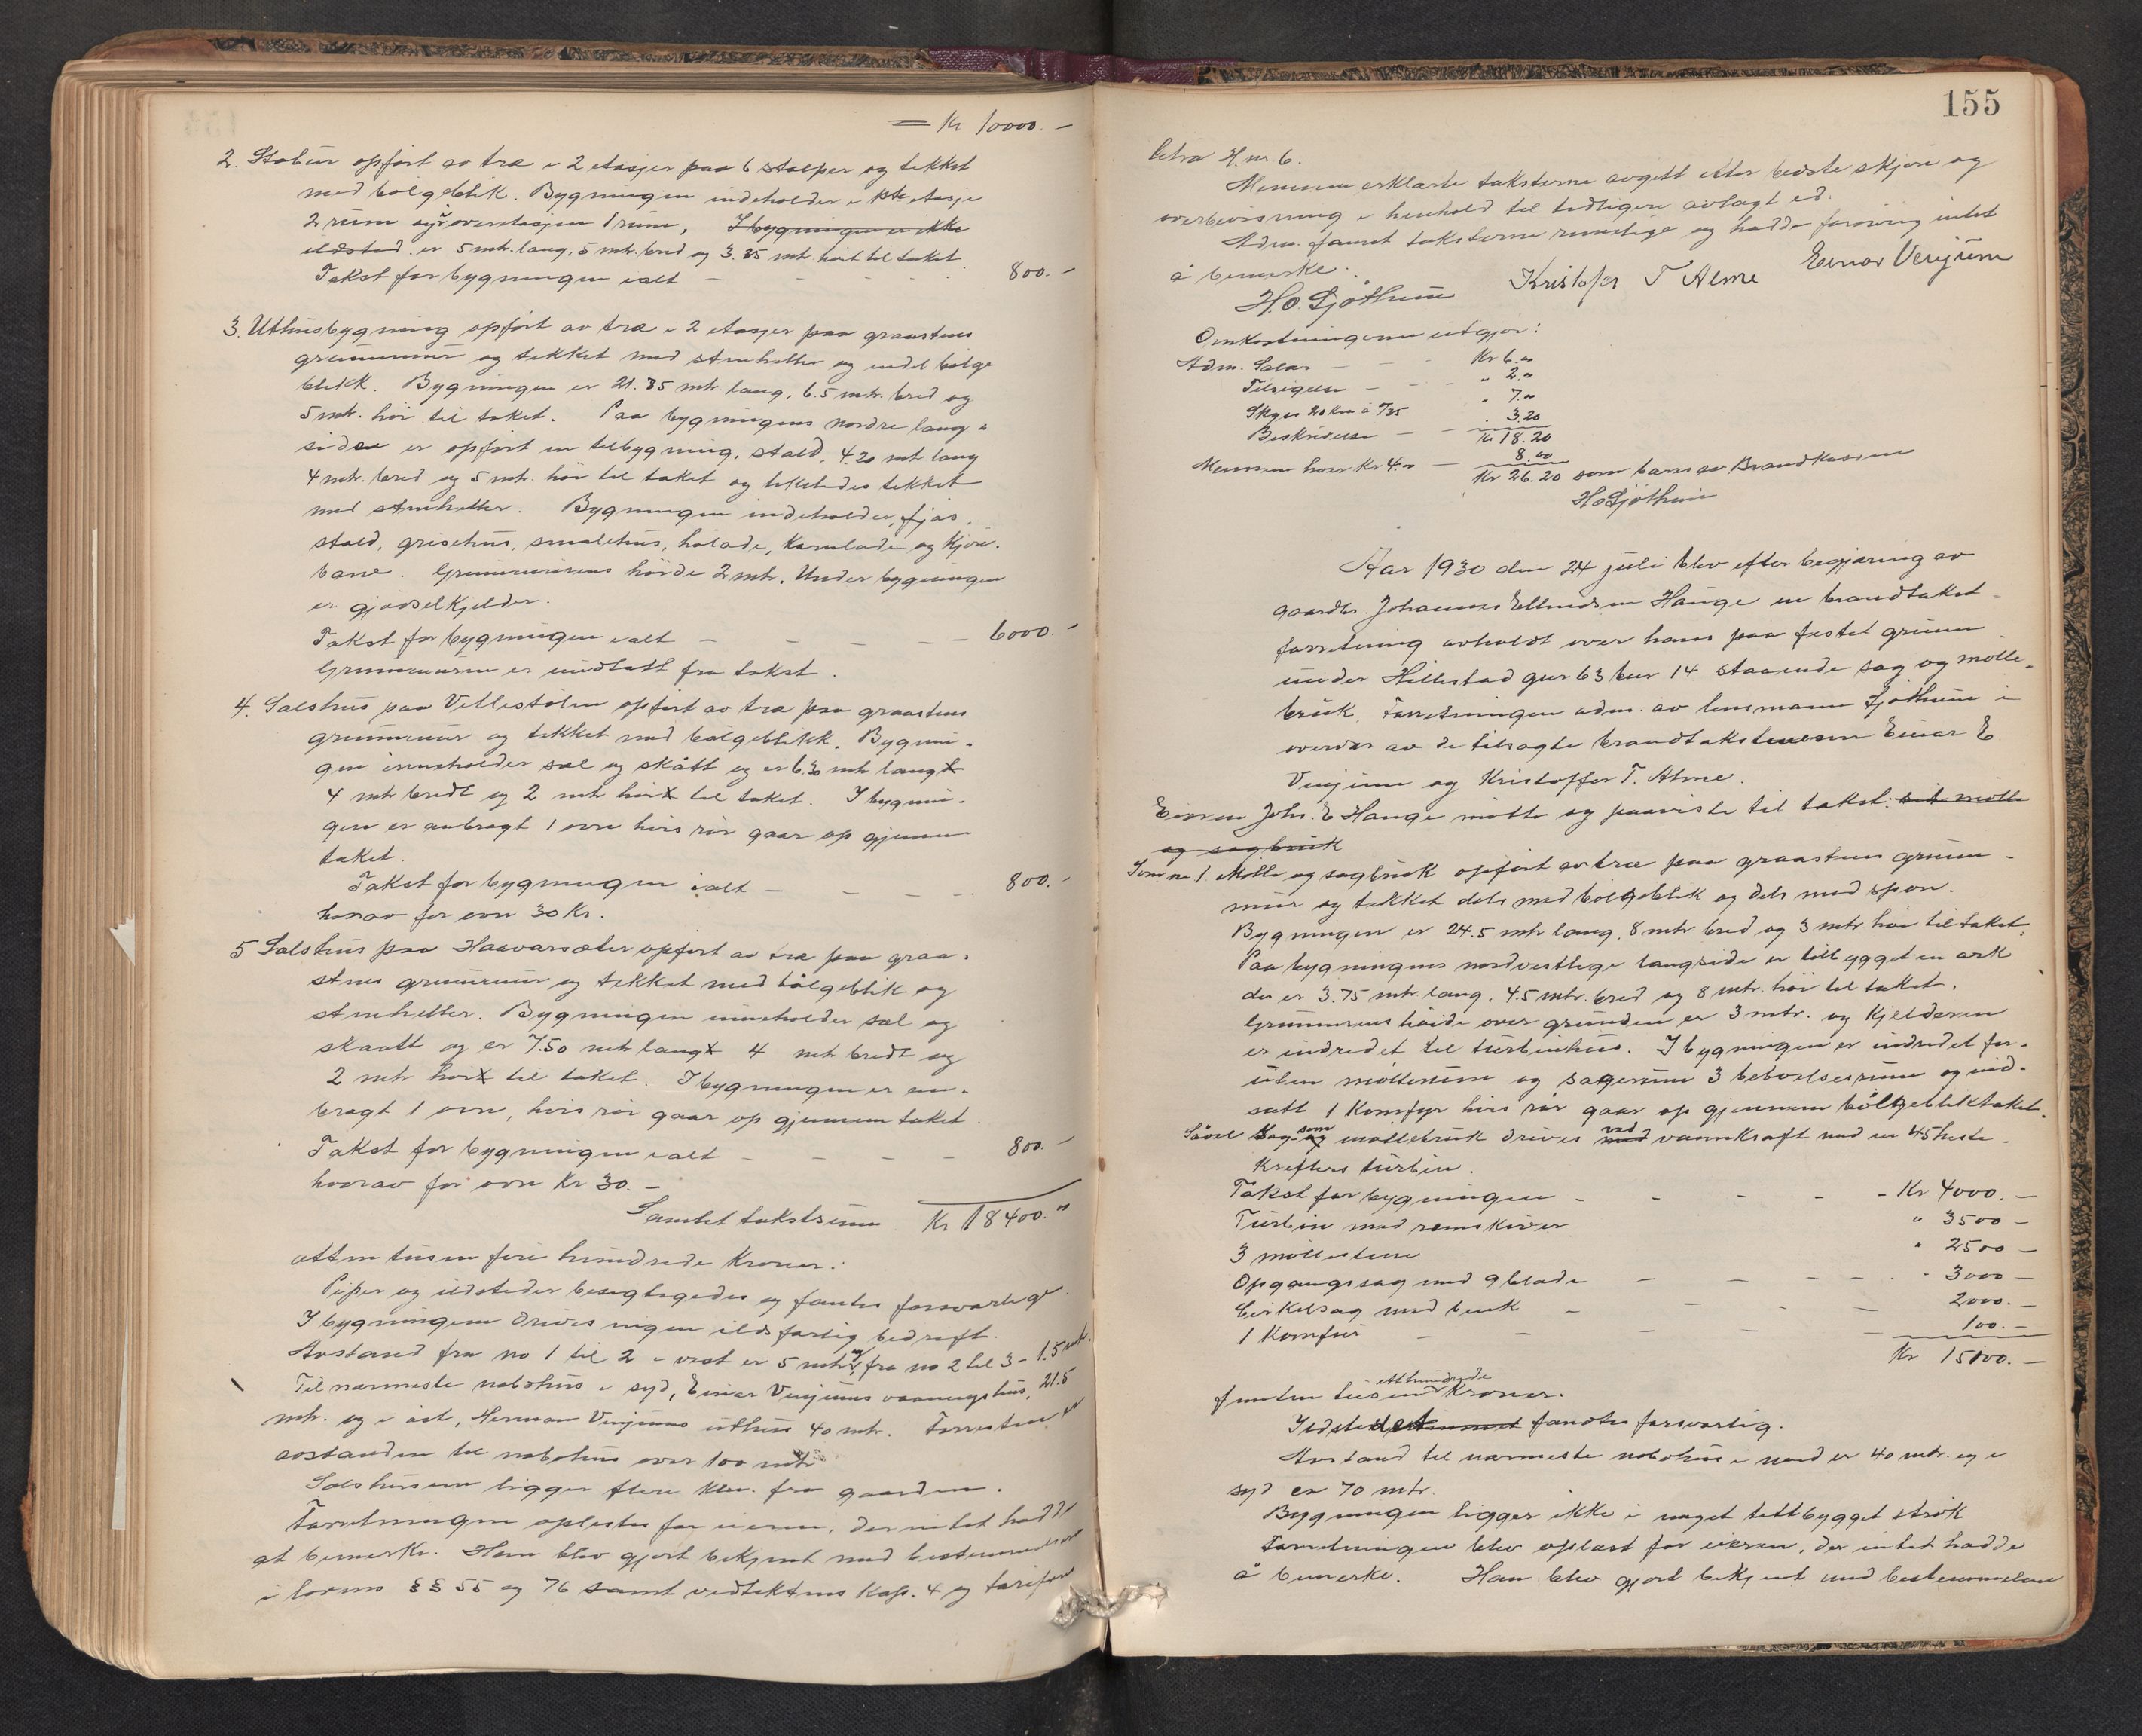 = Kr 10000.-
2. Stabur opført av træ i 2 etasjer paa 6 stolper og tekket
med bølgeblik. Bygningen indeholder i 1ste etasje
2 rum og i overetasjen 1 rum, I bygningen er ikke
ildsted. er 5 mtr. lang, 5 mtr. bred og 3.35 mtr. høit til taket
Takst for bygningen ialt - - - - 800.-
3. Uthusbygning opført av træ i 2 etasjer paa graastens
grunnmur og tekket med stenheller og endel bølge
blikk. Bygningen er 21.35 mtr. lang, 6.5 mtr. bred og
5 mtr. høi til taket. Paa bygningens nordre lang-
side er opført en tilbygning, stald, 4.20 mtr. lang
4 mtr. bred og 5 mtr. høi til taket og likeledes tekket
med stenheller. Bygningen indeholder, fjøs,
stald, grisehus, smalehus, høladе, kornlade og kjøre-
bane. Grunnmurens høide 2 mtr. Under bygningen
er gjødselkjelder.
Takst for bygningen ialt - - - - - 6000.-
Grunnmuren er undtatt fra takst.
4. Selshus paa Vetlestølen opført av træ paa graastens
grunnmur og tekket med bølgeblikk. Bygnin-
gen inneholder sel og skått og er 6.30 mtr langt
4 mtr bredt og 2 mtr høit til taket. I bygnin-
gen er anbragt 1 ovn hvis rør gaar op gjennem
taket.
Takst for bygningen ialt - - - - 800.-
herav for ovn 30 Kr.
5 Selshus paa Haavarsæter opført av træ paa graa-
stens grunnmur og tekket med bølgeblik og
stenheller. Bygningen inneholder sel og
skaatt og er 7.50 mtr langt 4 mtr bredt og
2 mtr høit til taket. I bygningen er an-
bragt 1 ovn, hvis rør gaar op gjennem taket.
Takst for bygningen ialt - - - - 800.-
hvorav for ovn Kr 30.-
Samlet takstsum Kr 18400.-
atten tusen fire hundrede Kroner.
Piper og ildsteder besigtigedes og fantes forsvarlige.
I bygningene drives ingen ildsfarlig bedrift.
Avstand fra no 1 til 2 i vest er 5 mtr. og fra no 2 til 3 - 1.5 mtr.
Til nærmeste nabohus i syd, Einar Venjums vaaningshus, 21.5
mtr. og i øst, Herman Venjums uthus 40 mtr. Forresten er
avstanden til nabohus over 100 mtr.
Selshusene ligger flere klm. fra gaarden.
Forretningen oplestes for eieren, der intet hadde
at bemerke. Han blev gjort bekjent med bestemmelsene
i lovens §§ 55 og 76 samt vedtektenes Kap. 4 og tarifens
155
litra H. nr. 6.
Mennene erklærte taksterne avgitt efter bedste skjøn og
overbevisning i henhold til tidligere avlagt ed.
Adm. fannt taksterne rimelige og hadde forøvrig intet
å bemerke.
H.O. Sjøthun Kristofer T Alme Einar Venjum
Omkostningerne utgjør:
Adm. Salær - - Kr 6.00
Tilsigelse - - " 2.00
Skyss 20 km à 0/35 " 7.00
Beskrivelse - - " 3.20
Kr 18.20
Mennene hver Kr 4.00 - 8.00
Kr 26.20 som bæres av Brandkassen
HO Sjøthun
Aar 1930 den 24 juli blev efter begjæring av
gaardbr. Johannes Ellendsen Hauge en brandtakst-
forretning avholdt over hans paa festet grunn
under Hillestad gnr 63 bnr 14 staaende sag og mølle-
bruk. Forretningen adm. av lensmann Sjøthun i
overvær av de tilsagte brandtakstmenn Einar E
Venjum og Kristoffer T. Alme.
Eieren Johs. E Hauge møtte og paaviste til takst: sit mølle
og sagbruk
Som no 1. Mølle og sagbruk opført av træ paa graastens grunn-
mur og tekket dels med bølgeblik og dels med spon.
Bygningen er 24.5 mtr lang, 8 mtr bred og 3 mtr høi til taket.
Paa bygningens nordvestlige langside er tilbygget en ark
der er 3.75 mtr. lang, 4.5 mtr. bred og 8 mtr. høi til taket.
Grunnmurens høide over grunden er 3 mtr. og kjelderen
er indredet til turbinhus. I bygningen er indredet for-
uten møllerum og sagerum 3 beboelsesrum og ind-
satt 1 komfyr hvis rør gaar op gjennem bølgebliktaket.
Såvel sag- som og møllebruk drives ved med vannkraft med en 45 heste-
krefters turbin.
Takst for bygningen - - - - - Kr 4000.-
Turbin med remskiver " 3500 -
3 møllestene " 2500 -
Opgangssag med 9 blade - - - - " 3000 -
Cirkelsag med benk - - - - 2000.-
1 Komfur - - - - - 100.-
Kr 15100.-
femten tusen etthundrede Kroner.
Ildstedet fandtes forsvarlig.
Avstand til nærmeste nabohus i nord er 40 mtr. og i
syd ca 70 mtr.
Bygningen ligger ikke i noget tettbygget strøk
Forretningen blev oplæst for eieren, der intet hadde
å bemerke. Han blev gjort bekjent med bestemmelsene